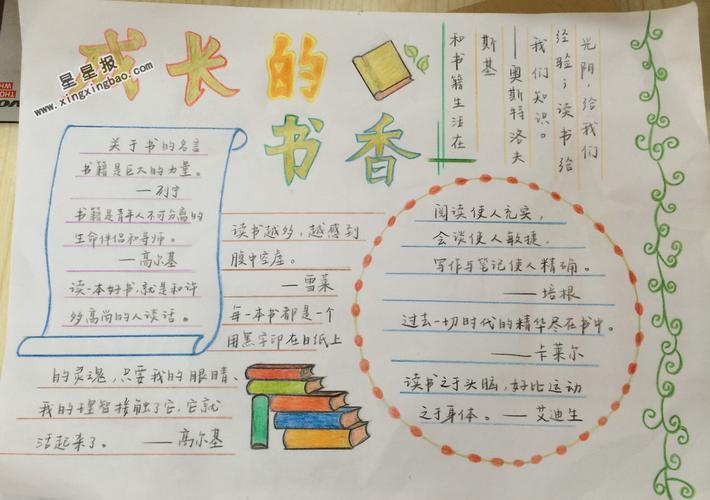 成长的
书香
星星报
www.xingxingbao.com
关于书的名言
书籍是巨大的力量。
——列宁
书籍是青年人不可分离的
生命伴侣和导师。
——高尔基
读一本好书,就是和许
多高尚的人谈话。
读书越多,越感到
腹中空虚。
——雪莱
每一本书都是一个
用黑字印在白纸上
的灵魂,只要我的眼睛、
我的理智接触了它,它就
活起来了。——高尔基
光阴,给我们
经验;读书给
我们知识。
——奥斯特洛夫
斯基
和书籍生活在
阅读使人充实,
会谈使人敏捷,
写作与笔记使人精确。
——培根
过去一切时代的精华尽在书中。
——卡莱尔
读书之于头脑,好比运动
之于身体。——艾迪生